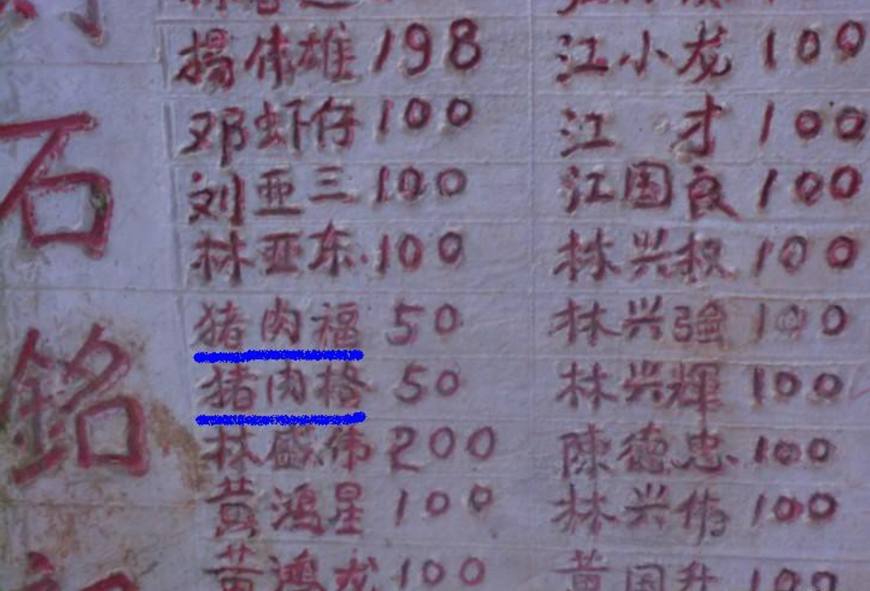 揚伟雄 198 江小龙 100
邓虾仔 100 江 才 100
石
刘亚三 100 江国良 100
林亚东 100 林兴权 100
猪肉福 50 林兴強 100
銘
猪肉 50 林兴輝 100
林盛伟 200 陳德忠 100
黄鸿星 100 林兴伟 100
黄鸿龙 100 黄国升 100